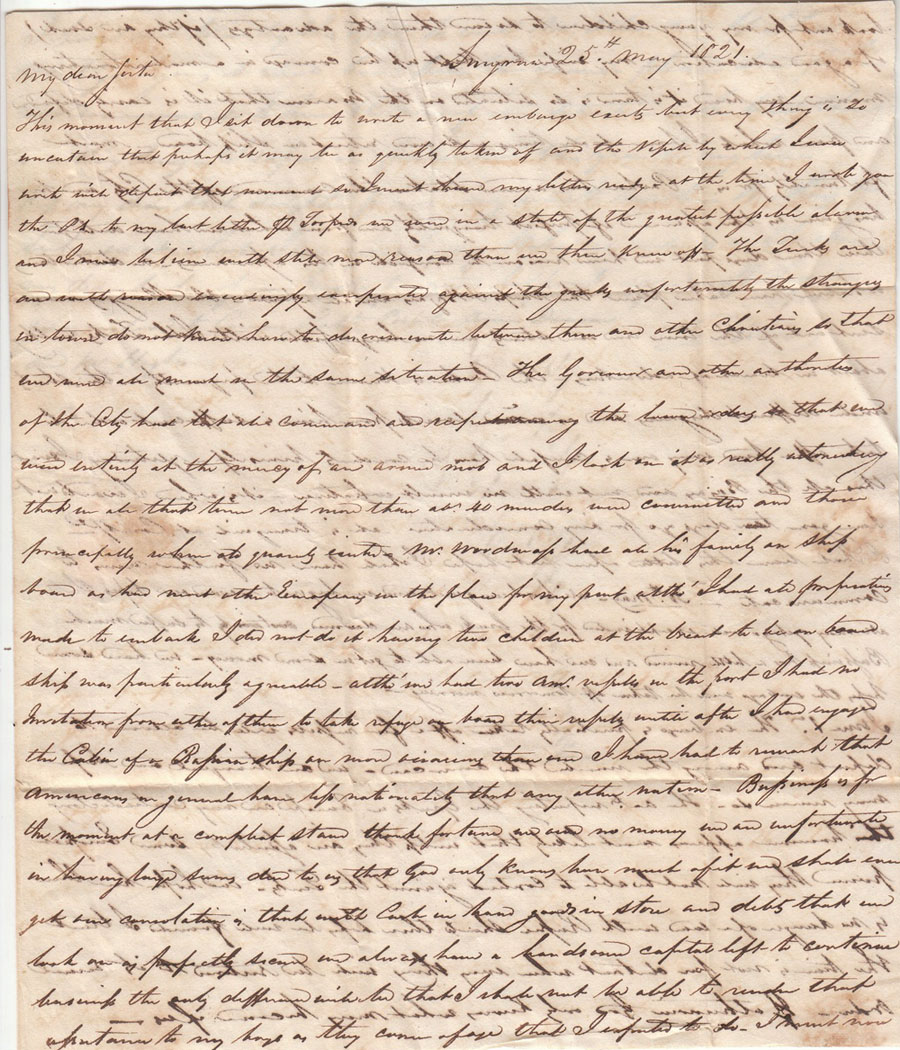 Smyrna 25th May 1821.
My dear Sister
This moment that I sit down to write a new embargo exists but every thing is so
uncertain that perhaps it may be as quickly taken off and the Vessel by which I now
write will depart that moment so I must have my letter ready - at the time I wrote you
the P.S. to my last letter we were in a state of the greatest possible alarm
and I must believe with still more reason than we then knew off - The Turks are
and with reason exceedingly exasperated against the greeks unfortunately the strangers
in town do not know how to discriminate between them and other Christians so that
we were all much in the same situation - The Governor and other authorities
of the City had lost all command and that we
were entirely at the mercy of an armed mob and I look on it as really astonishing
that in all that time not more than abt. 40 murders were committed and those
principally when all quarely - Mr. Woodmass had all his family on ship
board as had most other Europeans in the place for my part altho' I had all preparations
made to embark I did not do it having two children at the breast to be on board
ship was particularly agreable - altho' we had two Amn. vessels in the port I had no
Invitation from either of them to take refuge on board their vessels untill after I had engaged
the Cabin of a Russian ship on more occasions than one I have had to remark that
Americans in general have less nationality that any other nation - Bussiness is for
the moment at a compleat stand thank fortune we owe no money we are unfortunate
in having large sums due to us that God only knows how much of it we shall ever
get our consolation is that with Cash in hand goods in store and debts that we
look on as perfectly secure we always have a handsome capital left to continue
business the only difference will be that I shall not be able to render that
assistance to my boys as they come of age that I expected to do - I must now